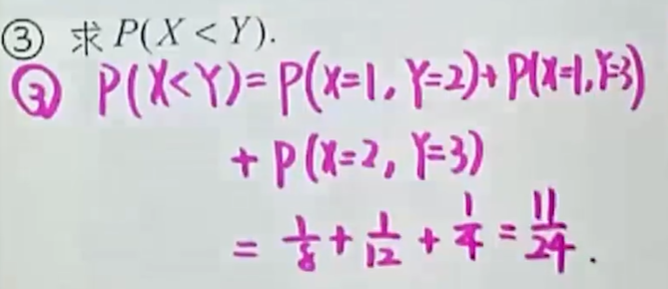 ③ 求 P(X < Y).
③ P(X<Y)= P(X=1, Y=2)+ P(X=1, Y=3)
+ P(X=2, Y=3)
= 1/8 + 1/12 + 1/4 = 11/24 .